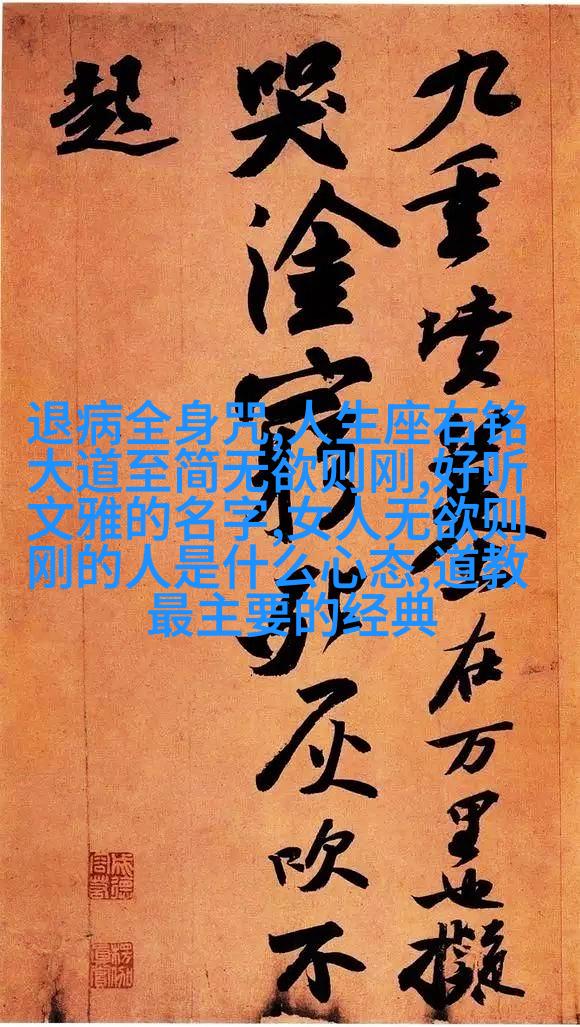 九重墳墓在万里也擬
哭塗窮死灰吹不
起
退病全身咒,人生座右铭
大道至简无欲则刚,好听
文雅的名字,女人无欲则
刚的人是什么心态,道教
最主要的经典
成德
容若
楞伽
真賞